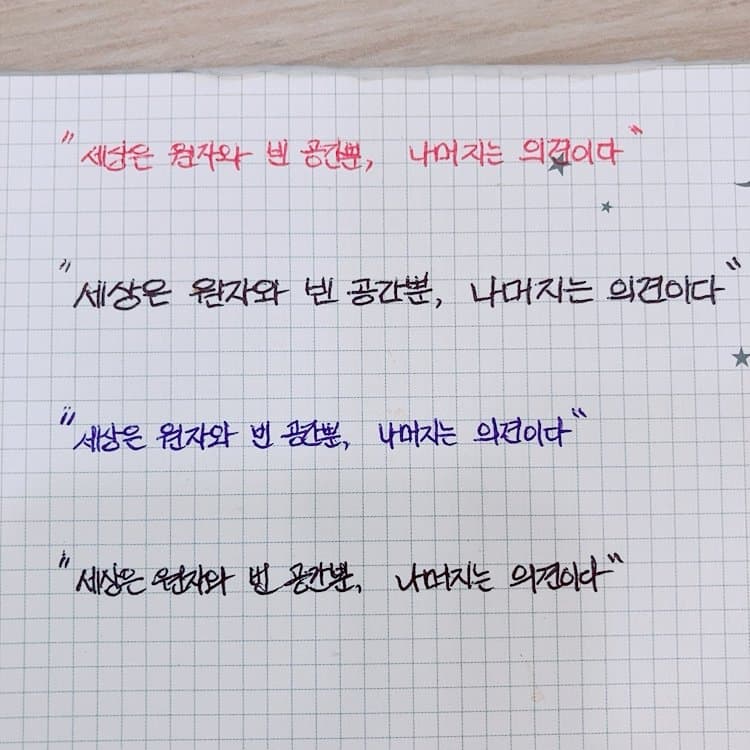 "세상은 원자와 빈 공간뿐, 나머지는 의견이다"
"세상은 원자와 빈 공간뿐, 나머지는 의견이다"
"세상은 원자와 빈 공간뿐, 나머지는 의견이다"
"세상은 원자와 빈 공간뿐, 나머지는 의견이다"